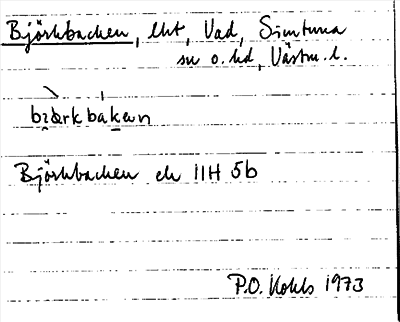 Björkbacken, lht, Vad, Simtuna
sn o. hd, Västm. l.
Björkbacken ek 11H 5b
P.O. Kohls 1973